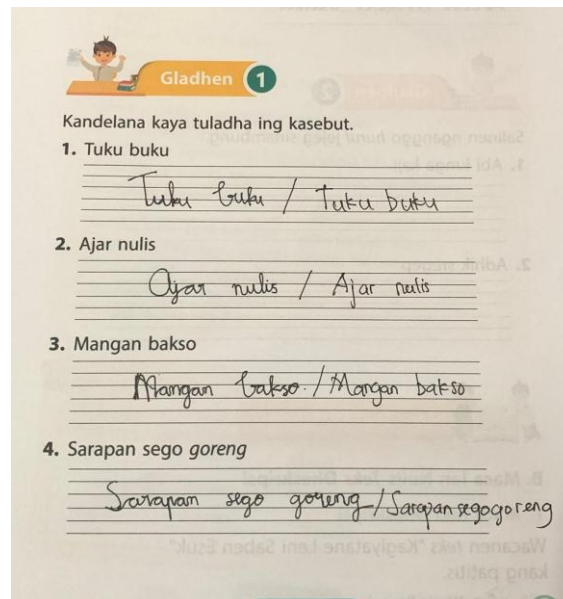 Gladhen 1
Kandelana kaya tuladha ing kasebut.
1. Tuku buku
Tuku buku / Tuku buku
2. Ajar nulis
Ajar nulis / Ajar nulis
3. Mangan bakso
Mangan bakso. / Mangan bakso
4. Sarapan sego goreng
Sarapan sego goreng / Sarapan sego goreng